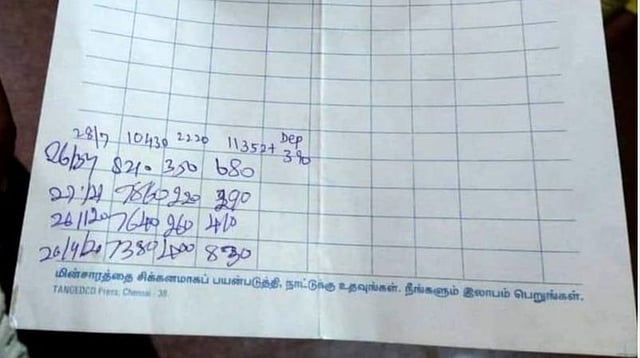 28/7 10430 2220 11352+ Dep 390
8210 350 680
7860 220 390
26/1/20 7640 260 410
7380 400 830
மின்சாரத்தை சிக்கனமாகப் பயன்படுத்தி, நாட்டுக்கு உதவுங்கள். நீங்களும் இலாபம் பெறுங்கள்.
TANGEDCO Press, Chennai - 38.